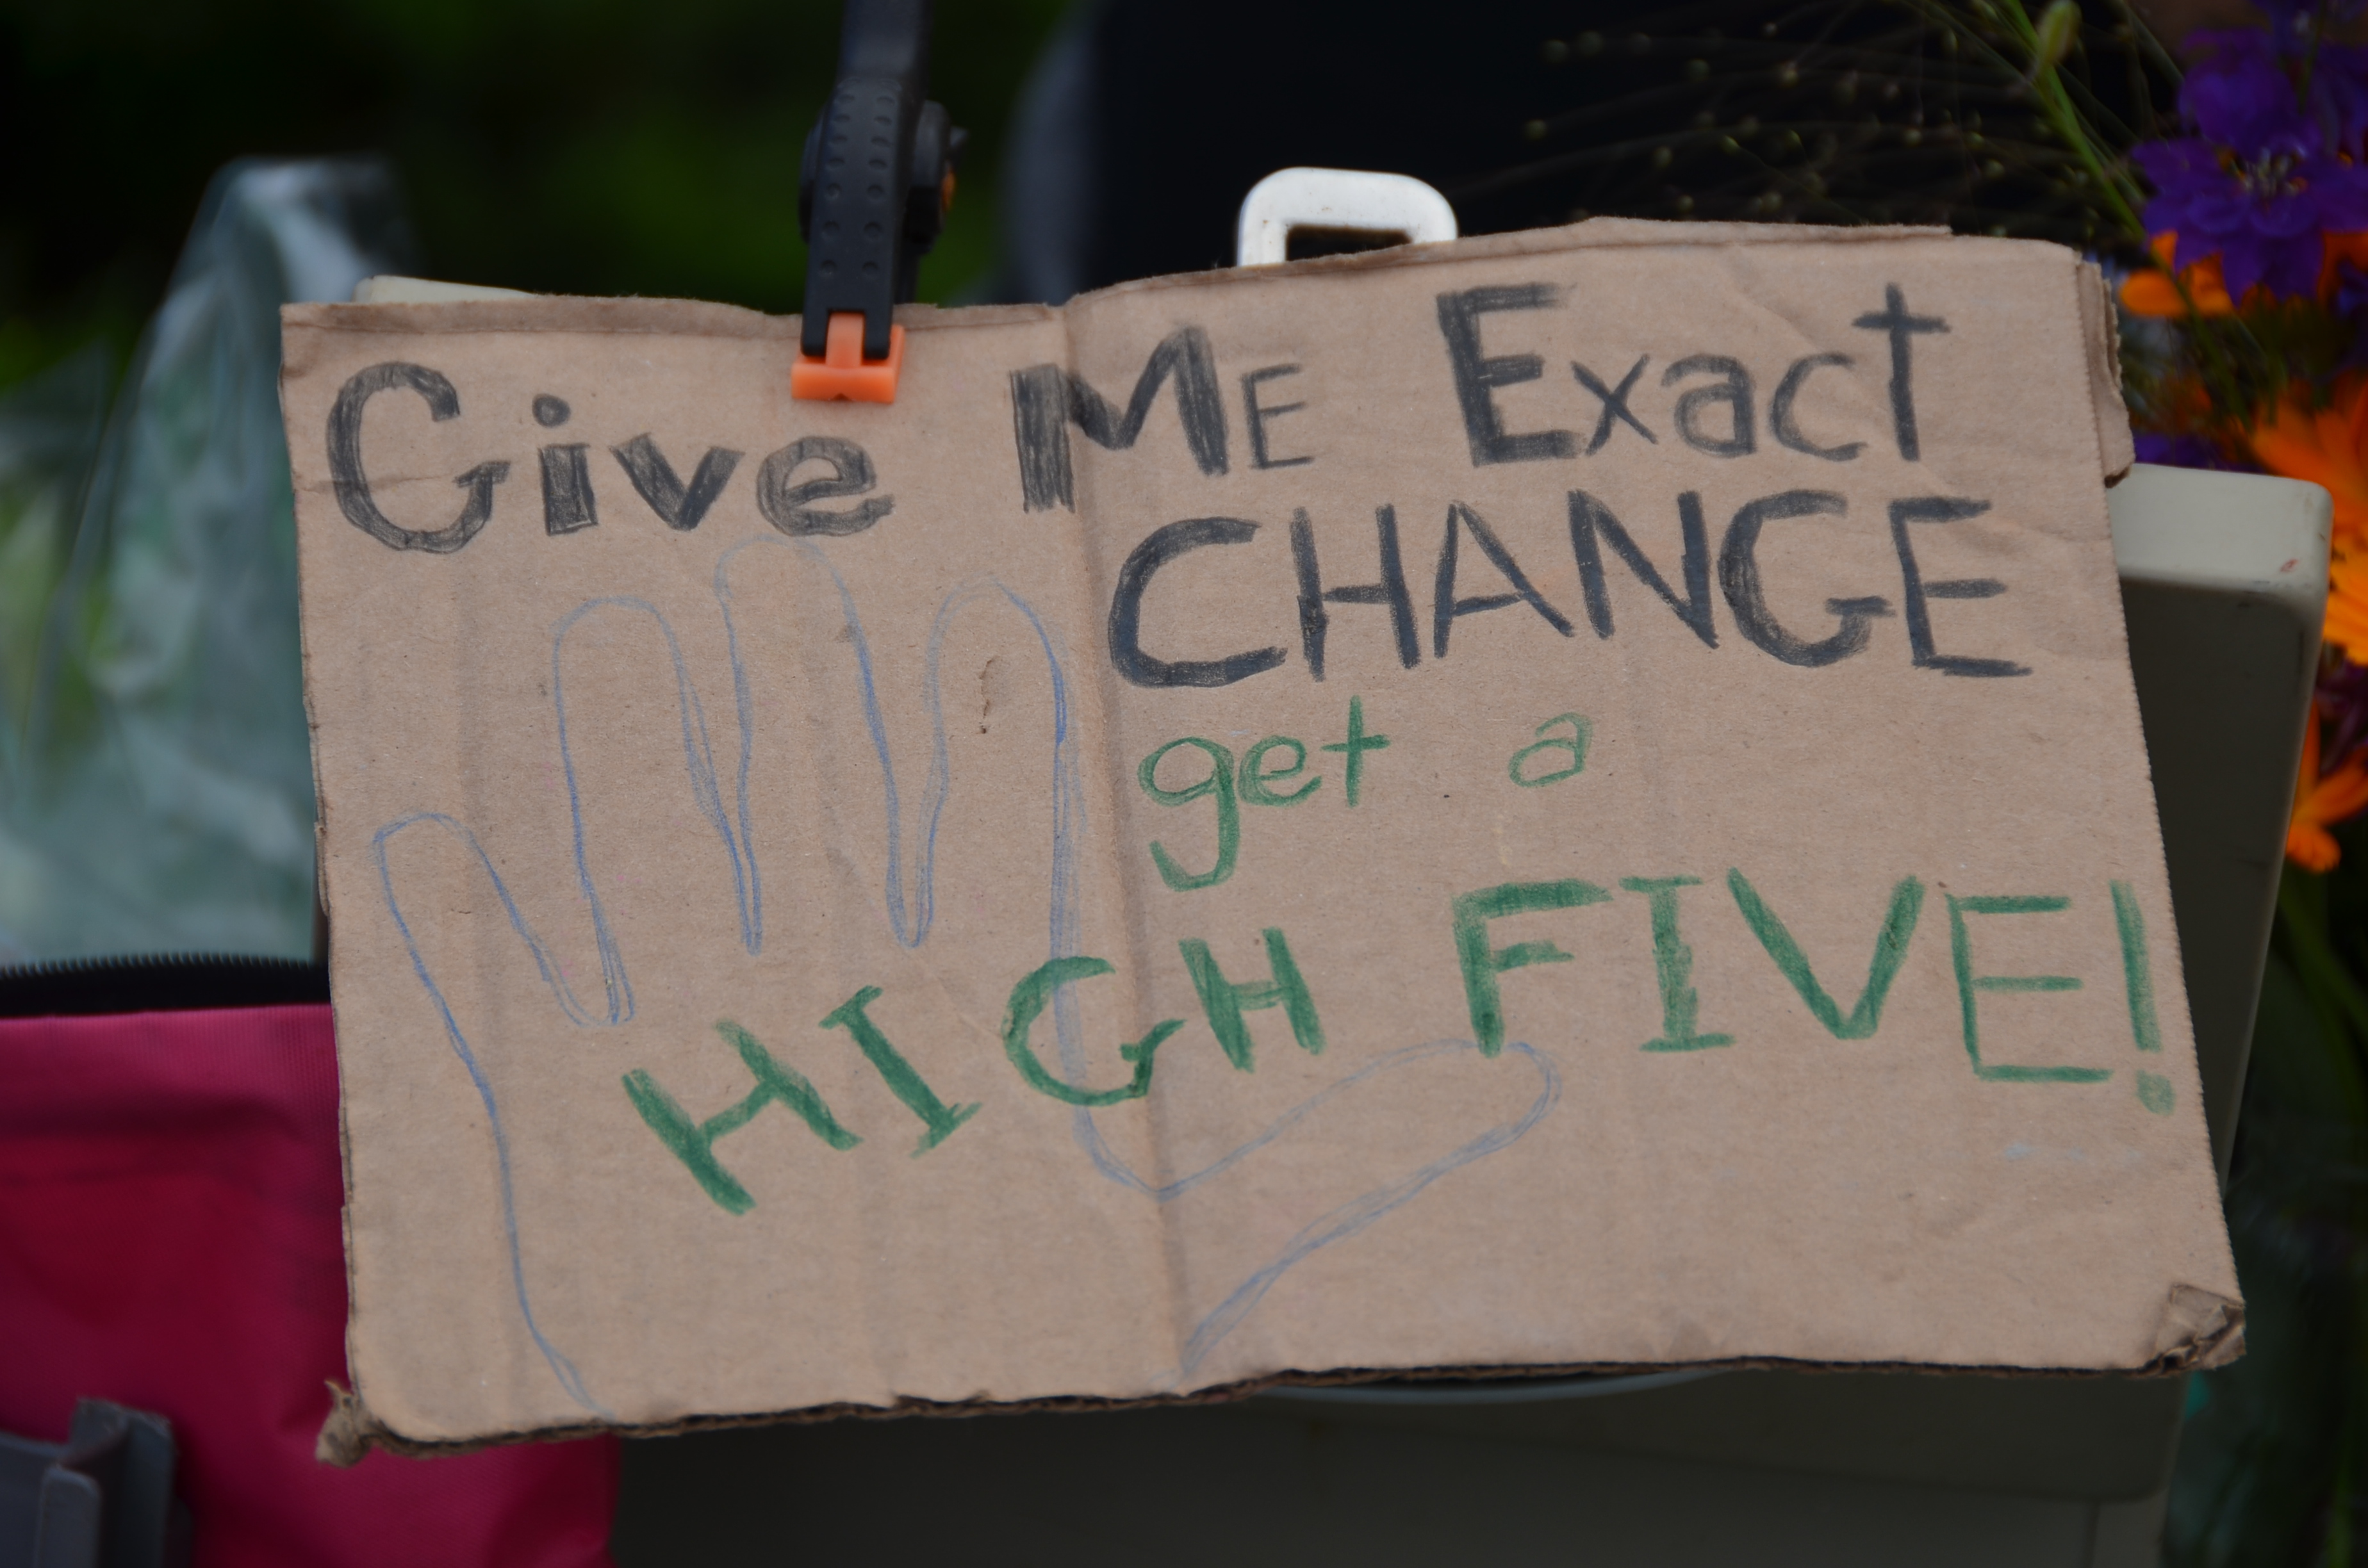 Give ME Exact
CHANGE
get a
HIGH FIVE!